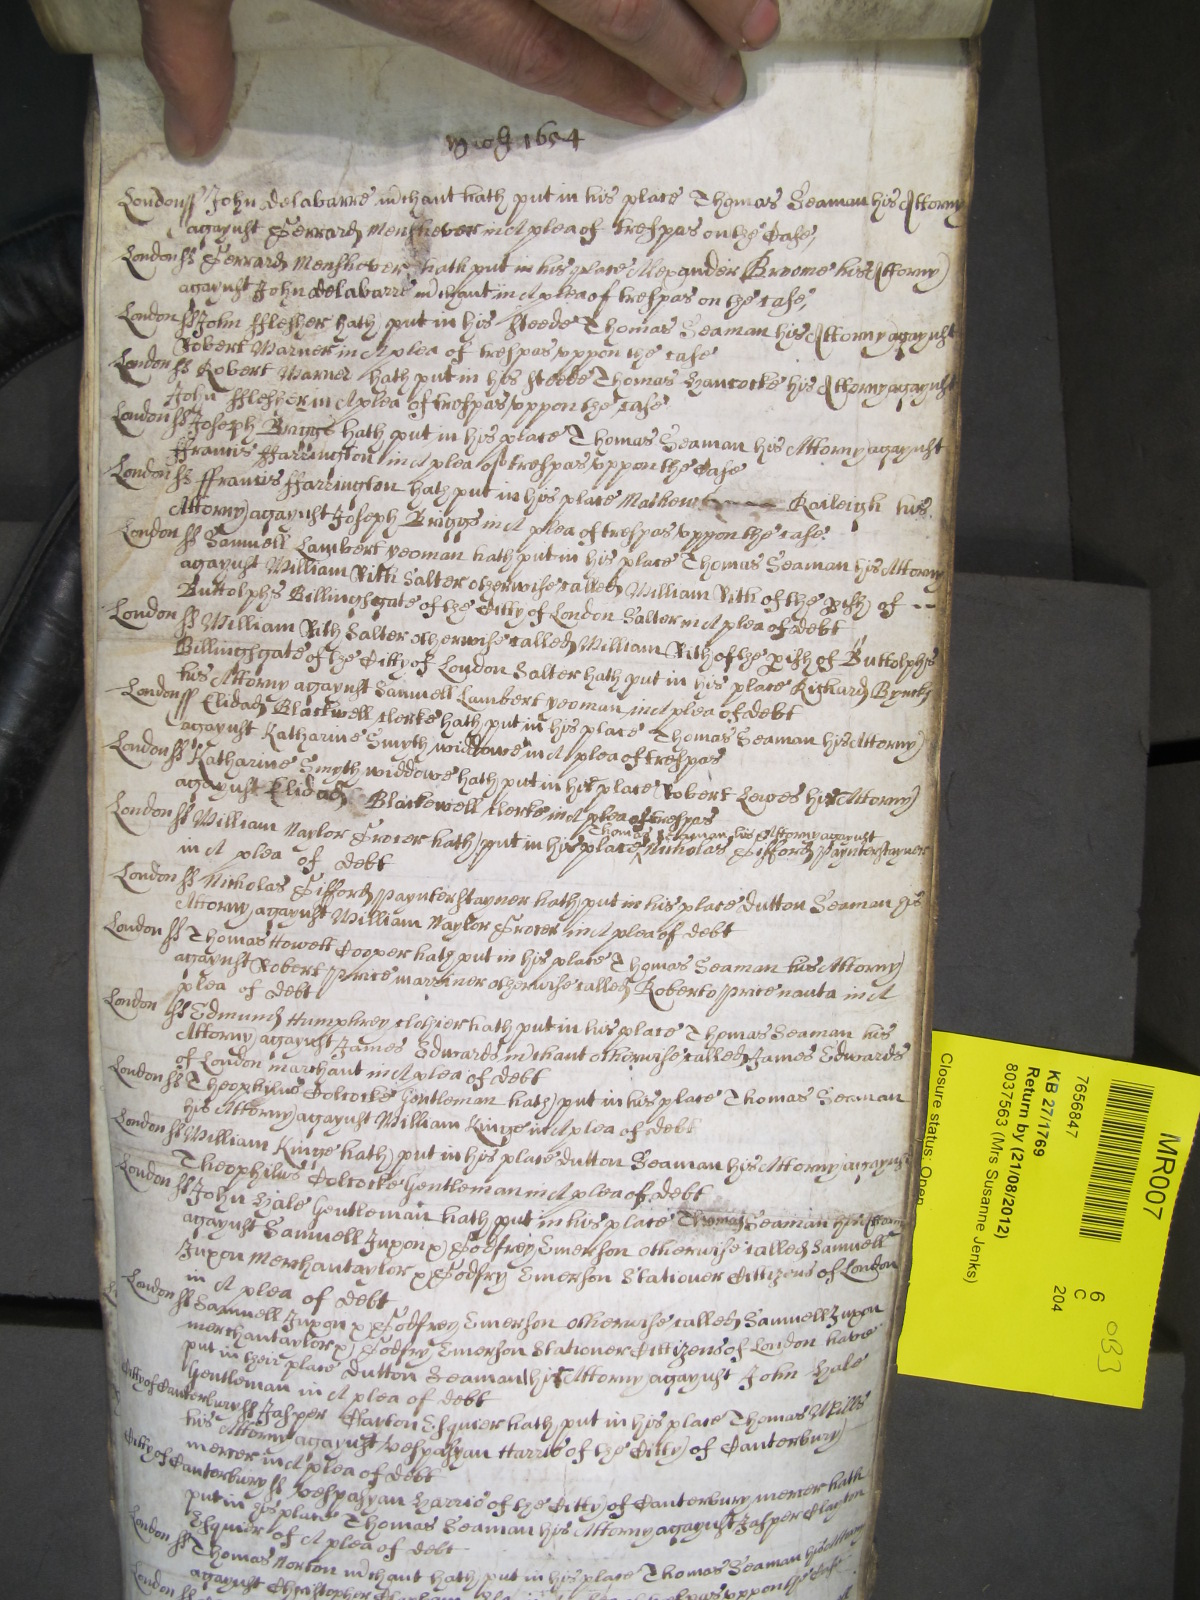 Mich 1654
London ss John Delabarre mchant hath put in his place Thomas Seaman his Attorny
agaynst Gerrard Menshever in A plea of trespas on the Case,
London ss Gerrard Menshever hath put in his place Alexander Broome his Attorny
agaynst John Delabarre mchant in A plea of trespas on the case,
London ss John fflesher hath put in his steede Thomas Seaman his Attorny agaynst
Robert Warner in A plea of trespas uppon the case
London ss Robert Warner hath put in his steede Thomas Hancocke his Attorny agaynst
John fflesher in A plea of trespas uppon the case
London ss Joseph Briggs hath put in his place Thomas Seaman his Attorny agaynst
ffrancis ffarrington in A plea of trespas uppon the Case
London ss ffrancis ffarrington hath put in his place Mathew Raileigh his
Attorny agaynst Joseph Briggs in A plea of trespas uppon the case
London ss Samuell Lambert yeoman hath put in his place Thomas Seaman his Attorny
agaynst William Rith Salter otherwise called William Rith of the pish of --
Buttolphs Billingsgate of the Citty of London Salter in A plea of debt
London ss William Rith Salter otherwise called William Rith of the pish of Buttolphs
Billingsgate of the Citty of London Salter hath put in his place Richard
his Attorny agaynst Samuell Lambert yeoman in A plea of debt
London ss Elidad Blackwell clerke hath put in his place Thomas Seaman his Attorny
agaynst Katharine Smyth widdowe in A plea of trespas
London ss Katharine Smyth widdowe hath put in his place Robert Lewes his Attorny
agaynst Elidad Blackwell clerke in A plea of trespas
Thomas Seaman his Attorny agaynst
London ss William Naylor Grocer hath put in his place Nicholas Gifford Paynterstayner
in A plea of debt
London ss Nicholas Gifford Paynterstayner hath put in his place Dutton Seaman his
Attorny agaynst William Naylor Grocer in A plea of debt
London ss Thomas Howett Cooper hath put in his place Thomas Seaman his Attorny
agaynst Robert Price marriner otherwise called Roberto Price nauta in A
plea of debt
London ss Edmund Humphrey clothier hath put in his place Thomas Seaman his
Attorny agaynst James Edwards mchant otherwise called James Edwards
of London marchant in A plea of debt
London ss Theophilus Colcocke Gentleman hath put in his place Thomas Seaman
his Attorny agaynst William Kinge in A plea of debt
London ss William Kinge hath put in his place Dutton Seaman his Attorny agaynst
Theophilus Colcocke Gentleman in A plea of debt
London ss John Hale Gentleman hath put in his place Thomas Seaman his Attorny
agaynst Samuell Juxon & Godfrey Emerson otherwise called Samuell
Juxon Merchantaylor & Godfry Emerson Stationer Cittizens of London
in A plea of debt
London ss Samuell Juxon & Godfrey Emerson otherwise called Samuell Juxon
merchantaylor & Godfry Emerson Stationer Cittizens of London have
put in their place Dutton Seaman his Attorny agaynst John Hale
Gentleman in A plea of debt
Citty of Canterbury ss Jasper Clayton Esquier hath put in his place Thomas
his Attorny agaynst Vespasyan Harris of the Citty of Canterbury
mercer in A plea of debt
Citty of Canterbury ss Vespasyan Harris of the Citty of Canterbury mercer hath
put in his place Thomas Seaman his Attorny agaynst Jasper Clayton
Esquier of A plea of debt
London ss Thomas Norton mchant hath put in his place Thomas Seaman his Attorny
agaynst Christopher trespas uppon the Case
London ss
MR007
7656847
6
C
204
KB 27/1769
Return by (21/08/2012)
8037563 (Mrs Susanne Jenks)
Closure status: Open
033